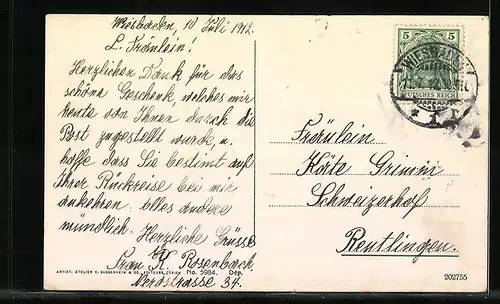 Wiesbaden, 10 Juli 1912.
L. Fräulein!
Herzlichen Dank für das
schöne Geschenk, welches mir
heute von Ihnen durch die
Post zugestellt wurde, u.
hoffe dass Sie bestimmt auf
Ihrer Rückreise bei mir
einkehren. Alles andere
mündlich. Herzliche Grüsse
Frau K. Rosenback.
Nerostrasse 34.
ARTIST. ATELIER H. GUGGENHEIM & CO., EDITEURS, ZÜRICH No. 5984. Dép.
5 5
DEUTSCHES REICH
WIESBADEN
* 1
Fräulein
Käte Grimm
Schweizerhof
Reutlingen.
202755